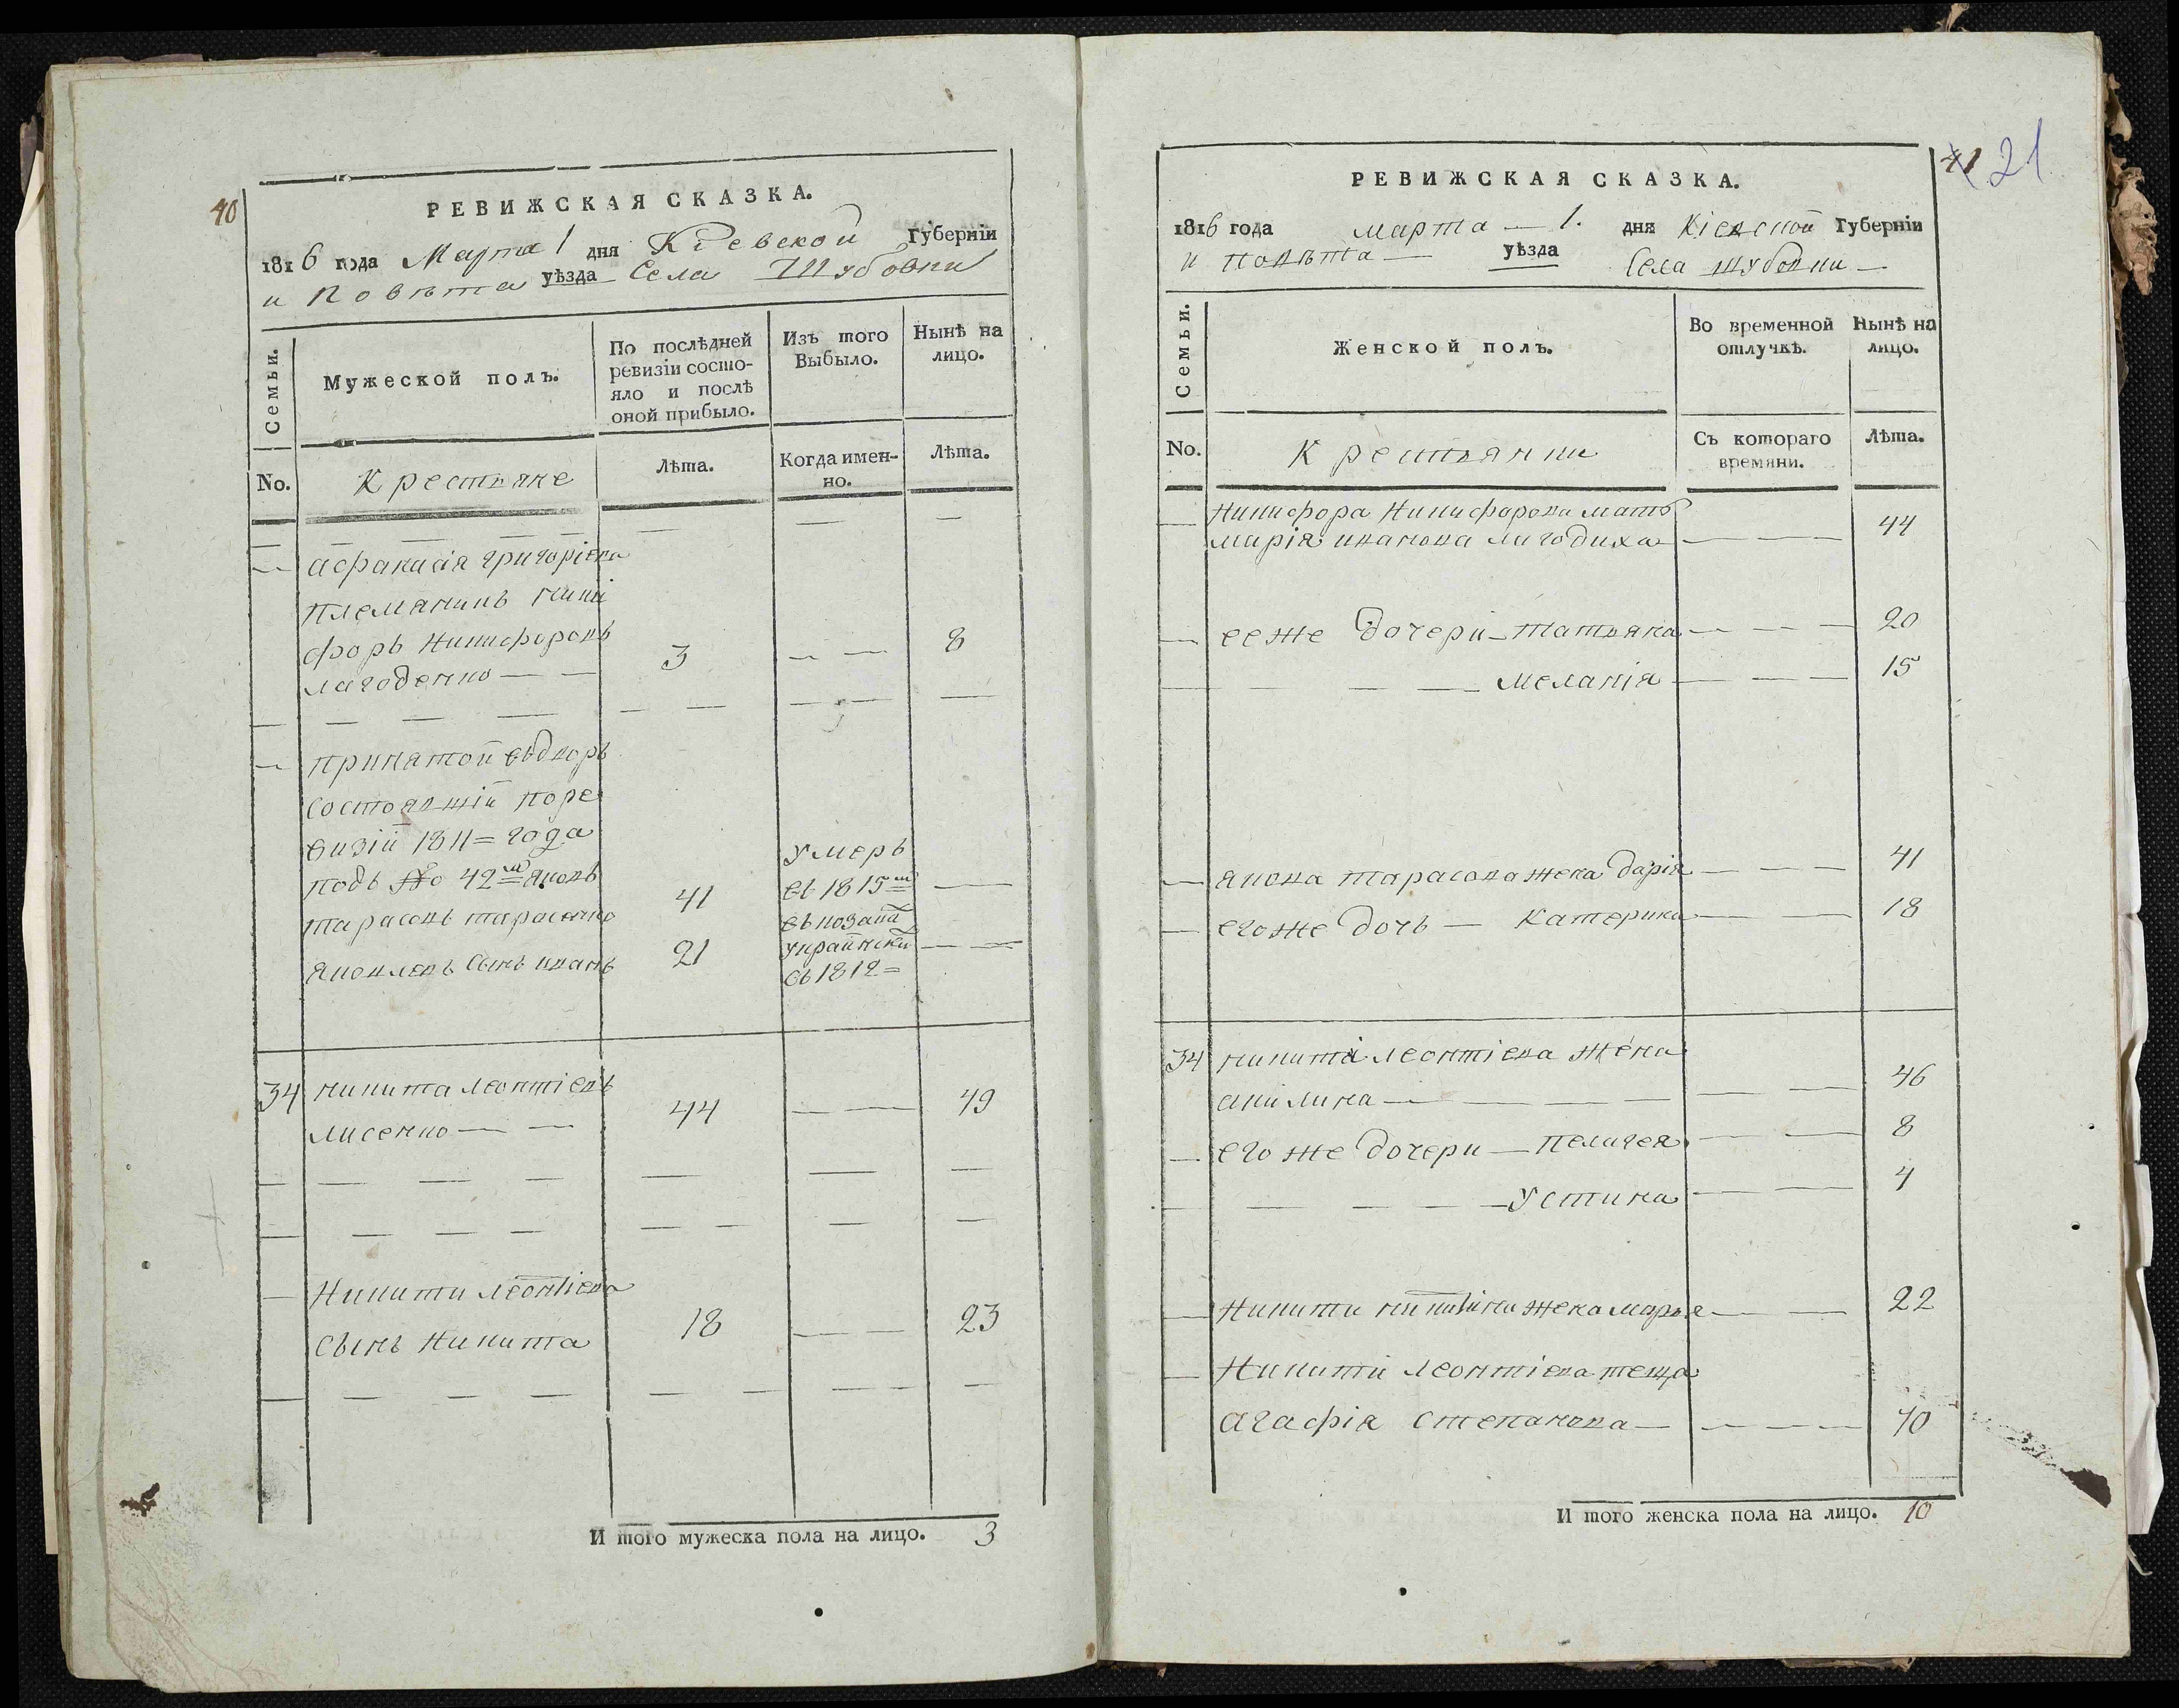 40
РЕВИЖСКАЯ СКАЗКА.
1816 года Марта 1 дня Кіевской Губерніи
и Повѣта уѣзда Села Шубовки
Семьи.
Мужеской полъ.
По послѣдней ревизіи состо-
яло и послѣ
оной прибыло.
Изъ того
Выбыло.
Нынѣ на
лицо.
No.
Крестьяне
Лѣта.
Когда имен-
но.
Лѣта.
Афанасія григоріева
племяникъ ники
форъ Никифоровъ
лагоденко — — 3 — — 8
принятой въдворъ
состоявшій поре
визій 1811 = года
подъ № 42 м яковъ
тарасовъ тарасенко 41 умеръ въ 1815 м —
яковлевъ сынъ иванъ 21 вькозаки украински въ 1812 = — —
34 никита леонтіевъ
лисенко — — 44 — — 49
Никити леонтіева
сынъ Никита 18 — — 23
И того мужеска пола на лицо. 3
41 21
РЕВИЖСКАЯ СКАЗКА.
1816 года марта — 1. дня Кіевской Губерніи
и повѣта — уѣзда Села шубовки —
Семьи.
Женской полъ.
Во временной
отлучкѣ.
Нынѣ на
лицо.
No.
Крестьянки
Съ котораго
времяни.
Лѣта.
Никифора Никифорова мать
марія иванова лагодиха — — — 44
ееже дочери — татьяна — — — 20
— — — — мелания — — — 15
якова тарасова жена дарія — — — 41
егоже дочь — катерина — — 18
34 никити леонтіева жена
акилина — — — — — — 46
его же дочери — пелагея — — 8
— — — — Устина — — 4
Никити никитина жена марья — — 22
Никити леонтіева теща
агафія степанова — — — — 70
И того женска пола на лицо. 10